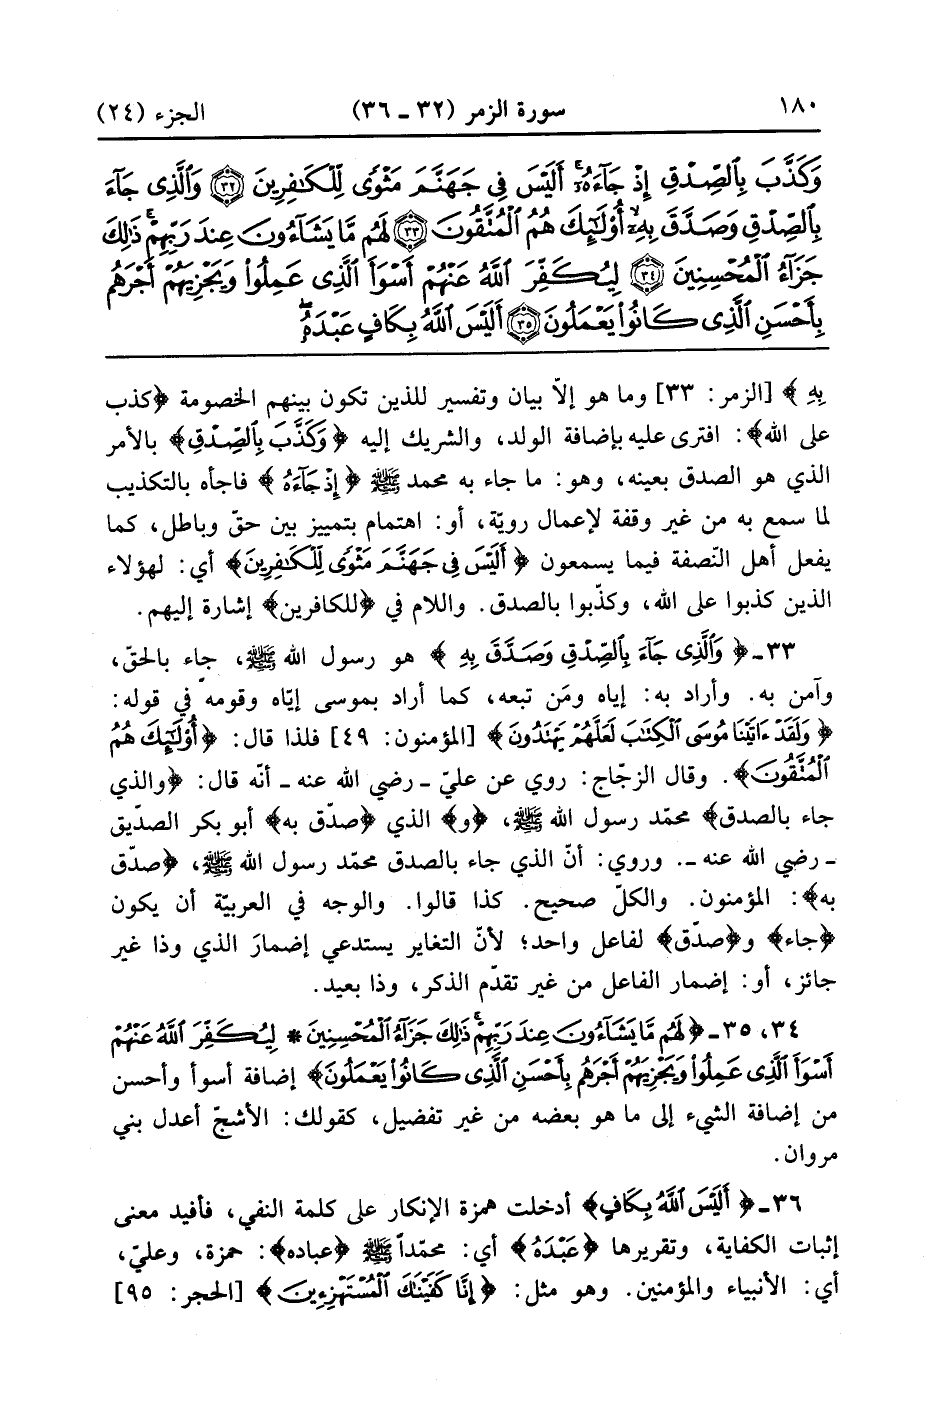 ١٨٠ سورة الزمر (٣٢ ـ ٣٦) الجزء (٢٤)
وَكَذَّبَ بِالصِّدْقِ إِذْ جَآءَهُۥٓ ۚ أَلَيْسَ فِى جَهَنَّمَ مَثْوًى لِّلْكَٰفِرِينَ ٣٢ وَالَّذِى جَآءَ
بِالصِّدْقِ وَصَدَّقَ بِهِۦٓ ۙ أُوْلَٰٓئِكَ هُمُ الْمُتَّقُونَ ٣٣ لَهُم مَّا يَشَآءُونَ عِندَ رَبِّهِمْ ۚ ذَٰلِكَ
جَزَآءُ الْمُحْسِنِينَ ٣٤ لِيُكَفِّرَ اللَّهُ عَنْهُمْ أَسْوَأَ الَّذِى عَمِلُوا۟ وَيَجْزِيَهُمْ أَجْرَهُم
بِأَحْسَنِ الَّذِى كَانُوا۟ يَعْمَلُونَ ٣٥ أَلَيْسَ اللَّهُ بِكَافٍ عَبْدَهُۥ ۖ
بِهِۦ﴾ [الزمر: ٣٣] وما هو إلاّ بيان وتفسير للذين تكون بينهم الخصومة ﴿كذب
على الله﴾: افترى عليه بإضافة الولد، والشريك إليه ﴿وَكَذَّبَ بِالصِّدْقِ﴾ بالأمر
الذي هو الصدق بعينه، وهو: ما جاء به محمد ﷺ ﴿إِذْ جَآءَهُۥ﴾ فاجأه بالتكذيب
لما سمع به من غير وقفة لإعمال رويّة، أو: اهتمام بتمييز بين حقّ وباطل، كما
يفعل أهل النّصفة فيما يسمعون ﴿أَلَيْسَ فِى جَهَنَّمَ مَثْوًى لِّلْكَٰفِرِينَ﴾ أي: لهؤلاء
الذين كذبوا على الله، وكذّبوا بالصدق. واللام في ﴿للكافرين﴾ إشارة إليهم.
٣٣ـ ﴿وَالَّذِى جَآءَ بِالصِّدْقِ وَصَدَّقَ بِهِۦ﴾ هو رسول الله ﷺ، جاء بالحقّ،
وآمن به. وأراد به: إياه ومَن تبعه، كما أراد بموسى إيّاه وقومه في قوله:
﴿وَلَقَدْ ءَاتَيْنَا مُوسَى الْكِتَٰبَ لَعَلَّهُمْ يَهْتَدُونَ﴾ [المؤمنون: ٤٩] فلذا قال: ﴿أُوْلَٰٓئِكَ هُمُ
الْمُتَّقُونَ﴾. وقال الزجّاج: روي عن عليّ ـ رضي الله عنه ـ أنّه قال: ﴿والذي
جاء بالصدق﴾ محمّد رسول الله ﷺ، ﴿و﴾ الذي ﴿صدّق به﴾ أبو بكر الصديق
ـ رضي الله عنه ـ. وروي: أنّ الذي جاء بالصدق محمّد رسول الله ﷺ، ﴿صدّق
به﴾: المؤمنون. والكلّ صحيح. كذا قالوا. والوجه في العربيّة أن يكون
﴿جاء﴾ و﴿صدّق﴾ لفاعل واحد؛ لأنّ التغاير يستدعي إضمارَ الذي وذا غير
جائز، أو: إضمار الفاعل من غير تقدّم الذكر، وذا بعيد.
٣٤، ٣٥ـ ﴿لَهُم مَّا يَشَآءُونَ عِندَ رَبِّهِمْ ۚ ذَٰلِكَ جَزَآءُ الْمُحْسِنِينَ * لِيُكَفِّرَ اللَّهُ عَنْهُمْ
أَسْوَأَ الَّذِى عَمِلُوا۟ وَيَجْزِيَهُمْ أَجْرَهُم بِأَحْسَنِ الَّذِى كَانُوا۟ يَعْمَلُونَ﴾ إضافة أسوأ وأحسن
من إضافة الشيء إلى ما هو بعضه من غير تفضيل، كقولك: الأشجّ أعدل بني
مروان.
٣٦ـ ﴿أَلَيْسَ اللَّهُ بِكَافٍ﴾ أدخلت همزة الإنكار على كلمة النفي، فأفيد معنى
إثبات الكفاية، وتقريرها ﴿عَبْدَهُۥ﴾ أي: محمّداً ﷺ ﴿عباده﴾: حمزة، وعليّ،
أي: الأنبياء والمؤمنين. وهو مثل: ﴿إِنَّا كَفَيْنَٰكَ الْمُسْتَهْزِءِينَ﴾ [الحجر: ٩٥]